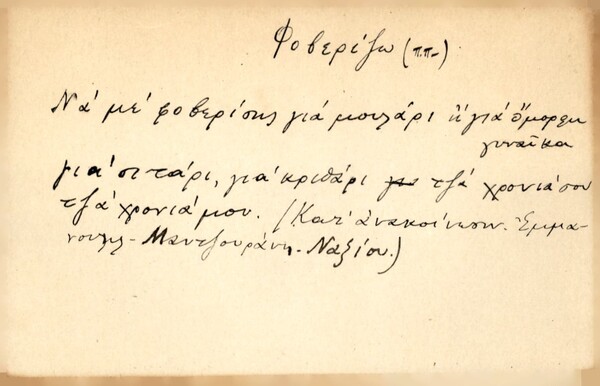 Φοβερίζω (ππ-)
Νά μέ φοβερίσης γιά μουλάρι ἤ γιά ὄμορφη
γυναῖκα
γιά σιτάρι, γιά κριθάρι τζά χρονιά σου
τζά χρονιά μου. (Κατ' ἀνακοίνωσιν. Ἐμμα-
νουὴλ - Μαντζουράνη - Ναξίου.)